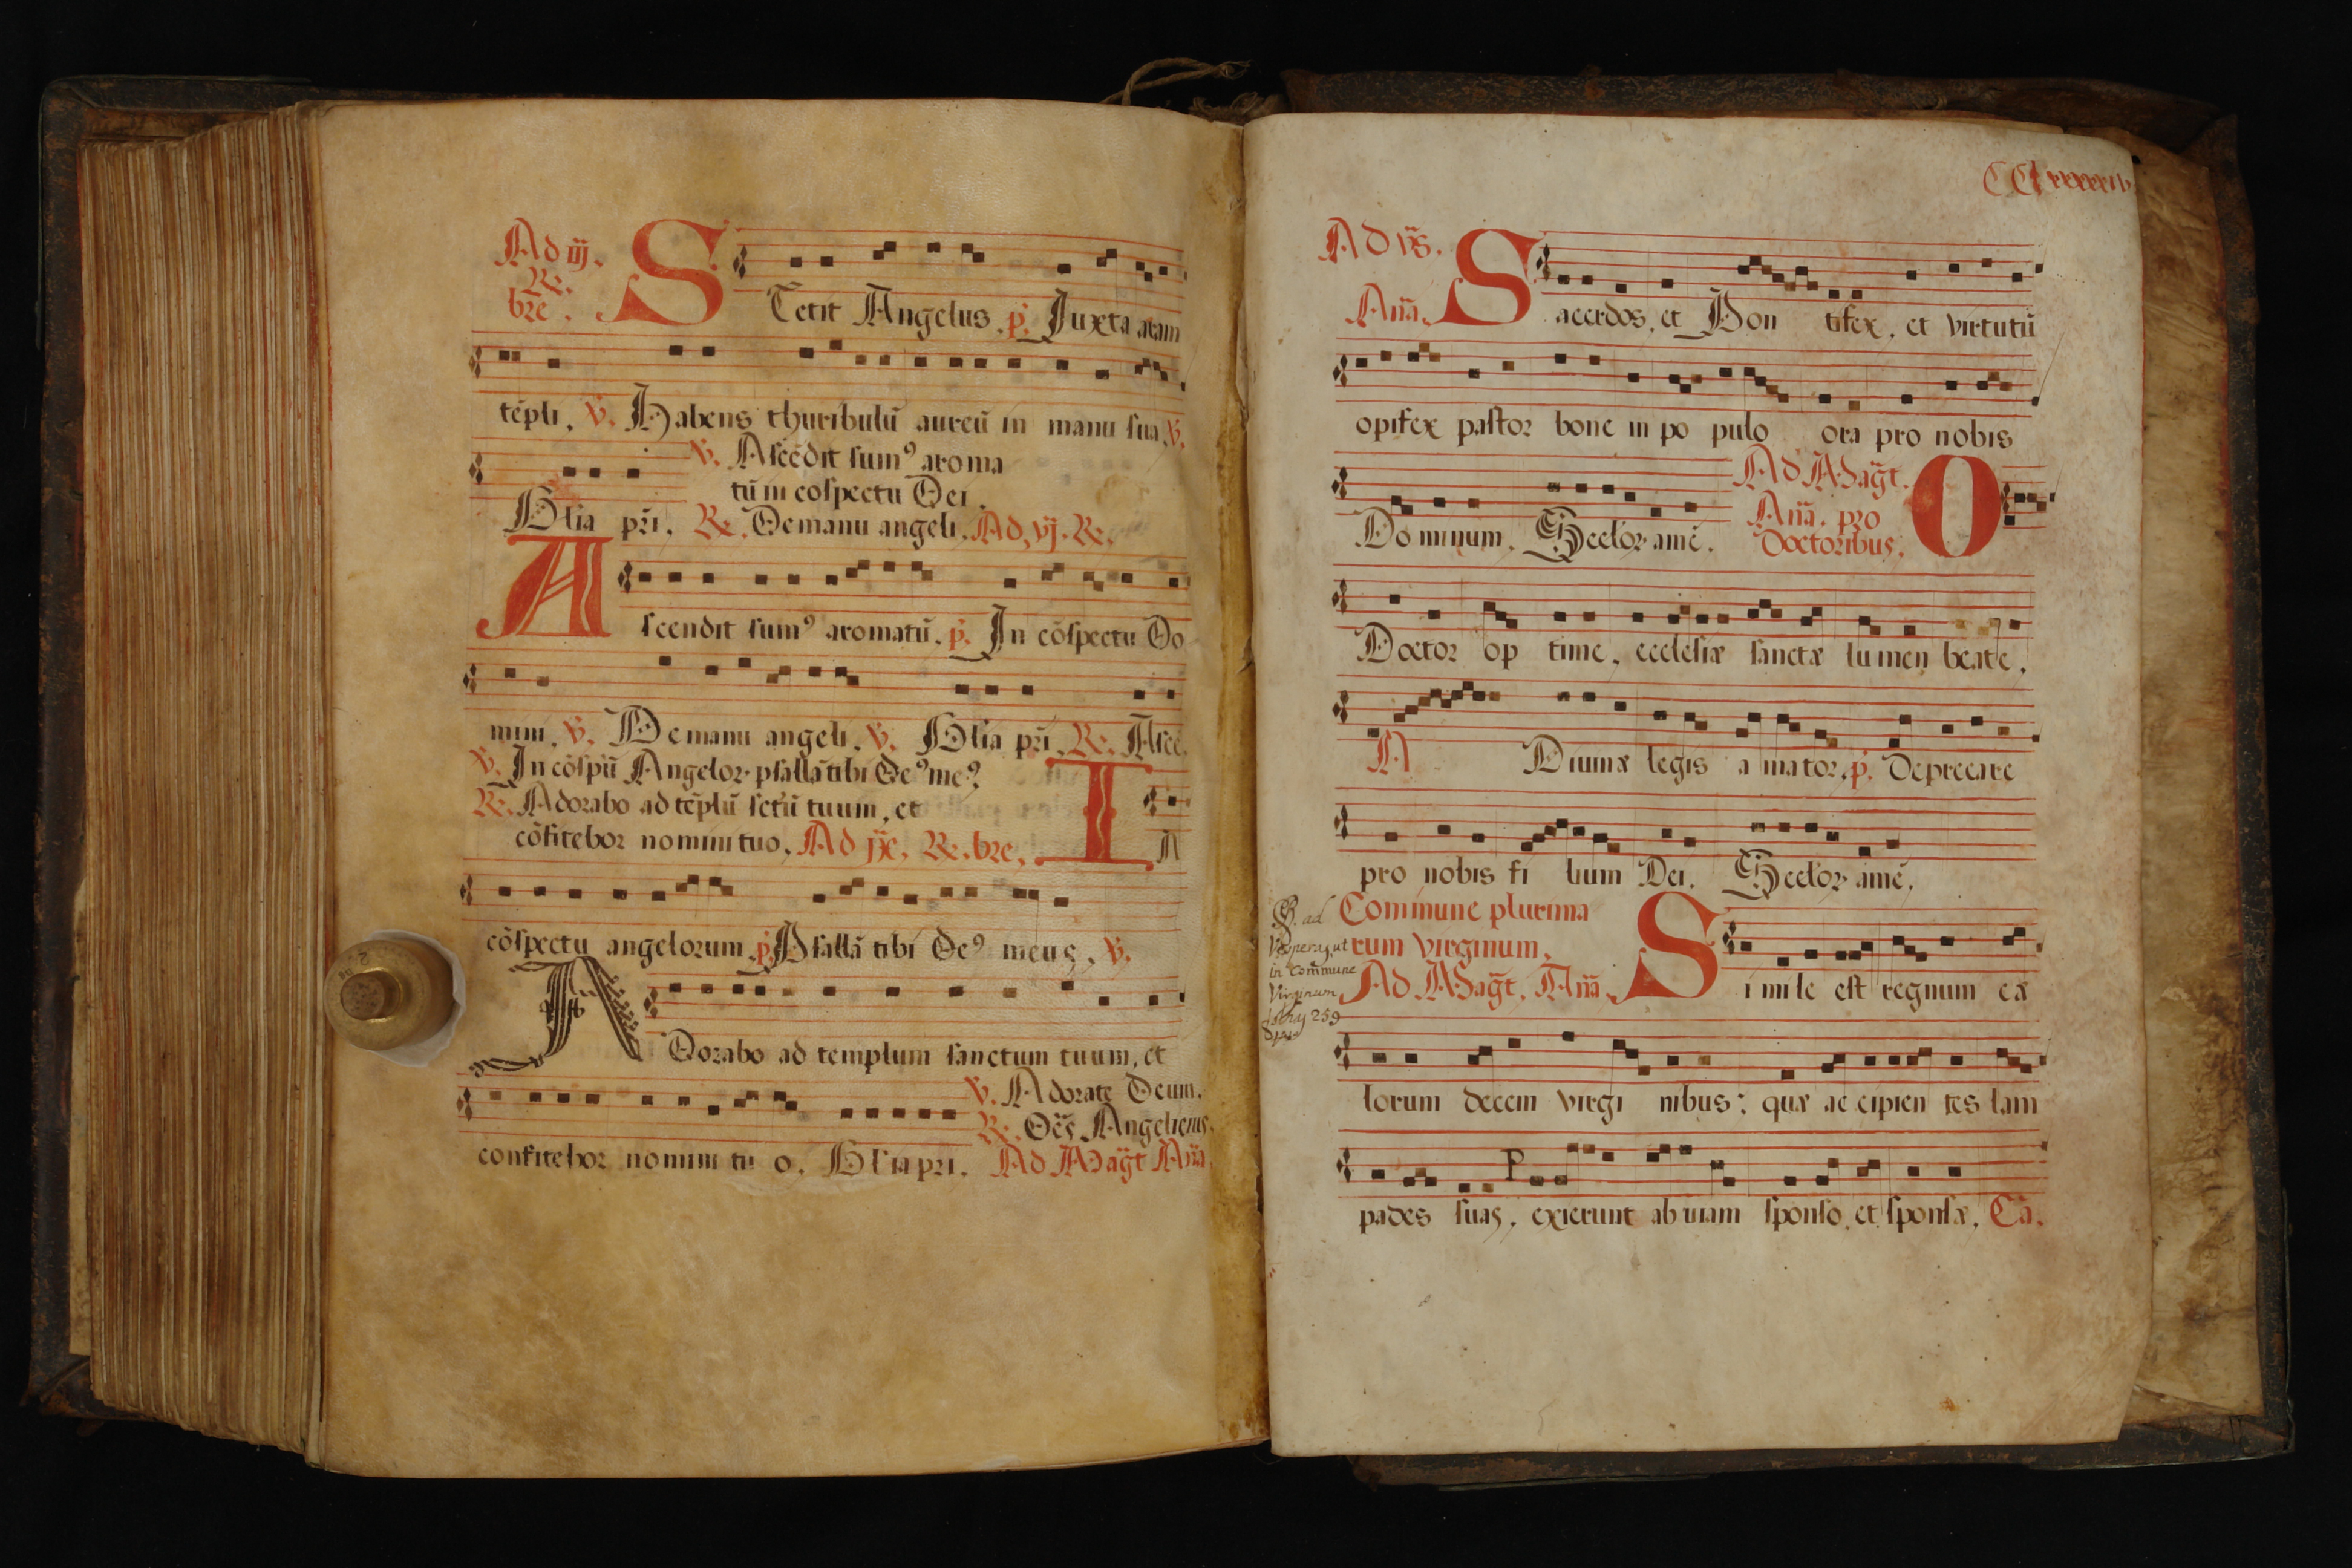 Ad iij.
Re.
bre.
S Tetit Angelus. p. Juxta aram
tẽpli, v. Habens thuribulũ aureũ in manu sua, v.
v. Ascẽdit fumꝰ aroma
tũ in cospectu Dei.
Glia pri. Re. De manu angeli. Ad, vj. Re.
A scendit fumꝰ aromatũ. p. In cõspectu Do
mini, v. De manu angeli. v. Glia pri, Re. Ascẽ.
v. In cõspũ Angelor psallã tibi Deꝰ meꝰ
Re. Adorabo ad tẽplũ sctũ tuum, et
cõfitebor nomini tuo. Ad jxe. Re. bre, I n
cõspectu angelorum. p. Psallã tibi Deꝰ meus, v.
A Dorabo ad templum sanctum tuum, et
v. Adorate Deum.
Re. Oẽs Angeli eius.
confitebor nomini tu o. Glia pri. Ad Magt Aña
Ad vs.
Aña. S acerdos, et Pon tifex, et virtutũ
opifex pastor bone in po pulo ora pro nobis
Ad Magt.
Aña. pro O
Do minum. Seclor amẽ. Doctoribus,
Doctor op time, ecclesiæ sanctæ lumen beate.
N Diuinæ legis a mator, p. Deprecare
pro nobis fi lium Dei. Seclor amẽ,
Commune plurima
rum virginum,
Ad Magt, Aña, S i mile est regnum cæ
ad
Vesperas, ut
in Commune
Virginum
259
lorum decem virgi nibus: quæ ac cipien tes lam
pades suas, exierunt ob uiam sponso, et sponsæ, Cã.